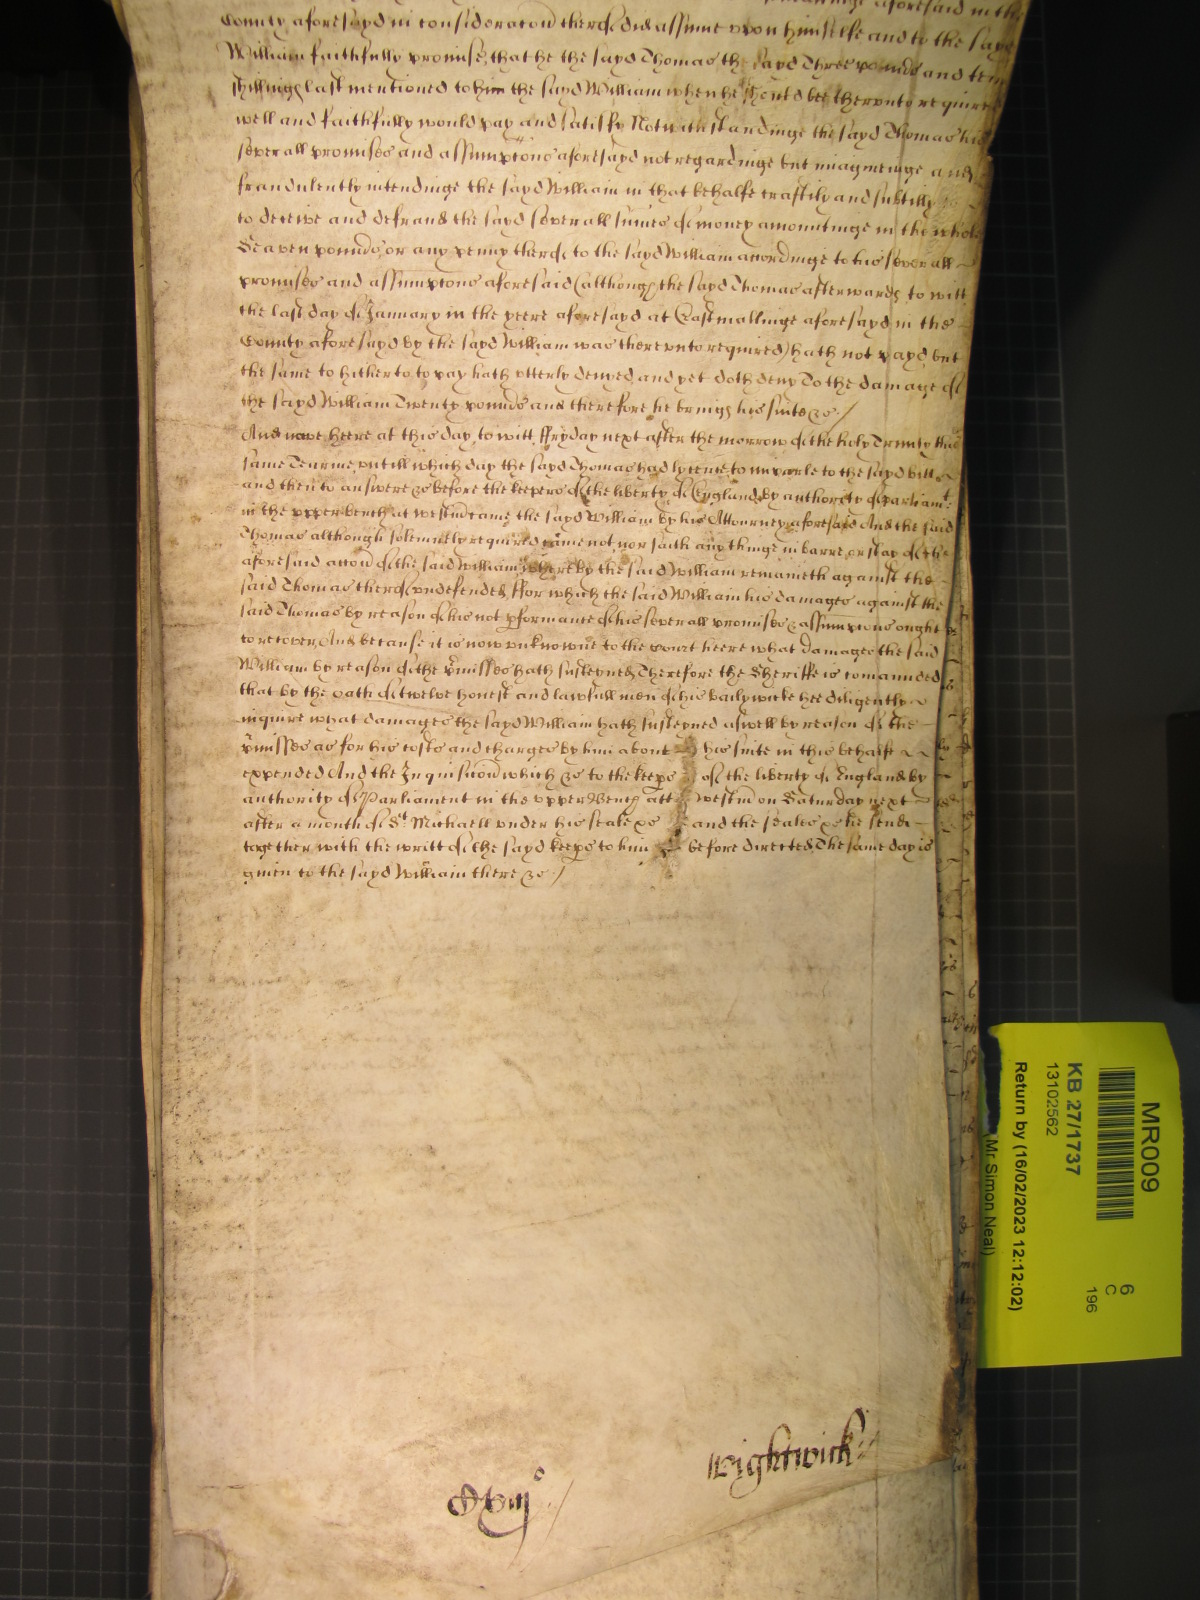 aforesaid in the
County aforesayd in consideracon therof did assume upon himselfe and to the sayd
William faithfully promise that he the sayd Thomas the sayd Three pounds and tenn
shillings last mentioned to him the sayd William when he should bee therunto required
well and faithfully would pay and satisfy Notwithstandinge the sayd Thomas his
severall promises and assumptons aforesayd not regardinge but imagineinge and
fraudulently intendinge the sayd William in that behalfe craftily and subtilly
to deceive and defraud the sayd severall sumes of money amountinge in the whole
Seaven pounds, or any penny therof to the sayd William accordinge to his severall
promises and assumptons aforesaid (although the sayd Thomas afterwards to witt
the last day of January in the yeere aforesayd at Eastmallinge aforesayd in the
County aforesayd by the sayd William was thereunto required) hath not payd but
the same to hitherto to pay hath utterly denyed and yet doth deny To the damage of
the sayd William Twenty pounds and therefore he brings his suite &c /
And nowe heere at this day, to witt ffryday next after the morrow of the holy Trinity this
same Tearme, untill which day the sayd Thomas had lycence to imparle to the sayd bill
and then to answere &c before the keepers of the liberty of England by authority of parliamt
in the upper bench at westm came the sayd William by his Attourney aforesaid And the said
Thomas although solemnely required came not nor saith any thinge in barre, or stay of the
aforesaid accon of the said William whereby the said William remaineth against the
said Thomas therof undefended, ffor which the said William his damages against the
said Thomas by reason of his not pformance of his severall promises & assumptons ought
to recover, And because it is now unknowne to the court heere what damages the said
William by reason of the pmisses hath susteyned, Therefore the Sheriffe is comanded
that by the oath of twelve honest and lawfull men of his bailywicke hee diligently
inquire what damages the sayd William hath susteyned aswell by reason of the
pmisses as for his costs and charges by him about his suite in this behalfe
expended And the Inquisicon which &c to the keeps of the liberty of England by
authority of Parliament in the upper Bench att westm on Saturday next
after a month of St Michaell under his seale &c and the seales &c he send
together with the writt of the sayd keeps to him before directed, The same day is
given to the sayd William there &c /
Wightwick
MR009
KB 27/1737
13102562
Return by (16/02/2023 12:12:02)
(Mr Simon Neal)
6
C
196